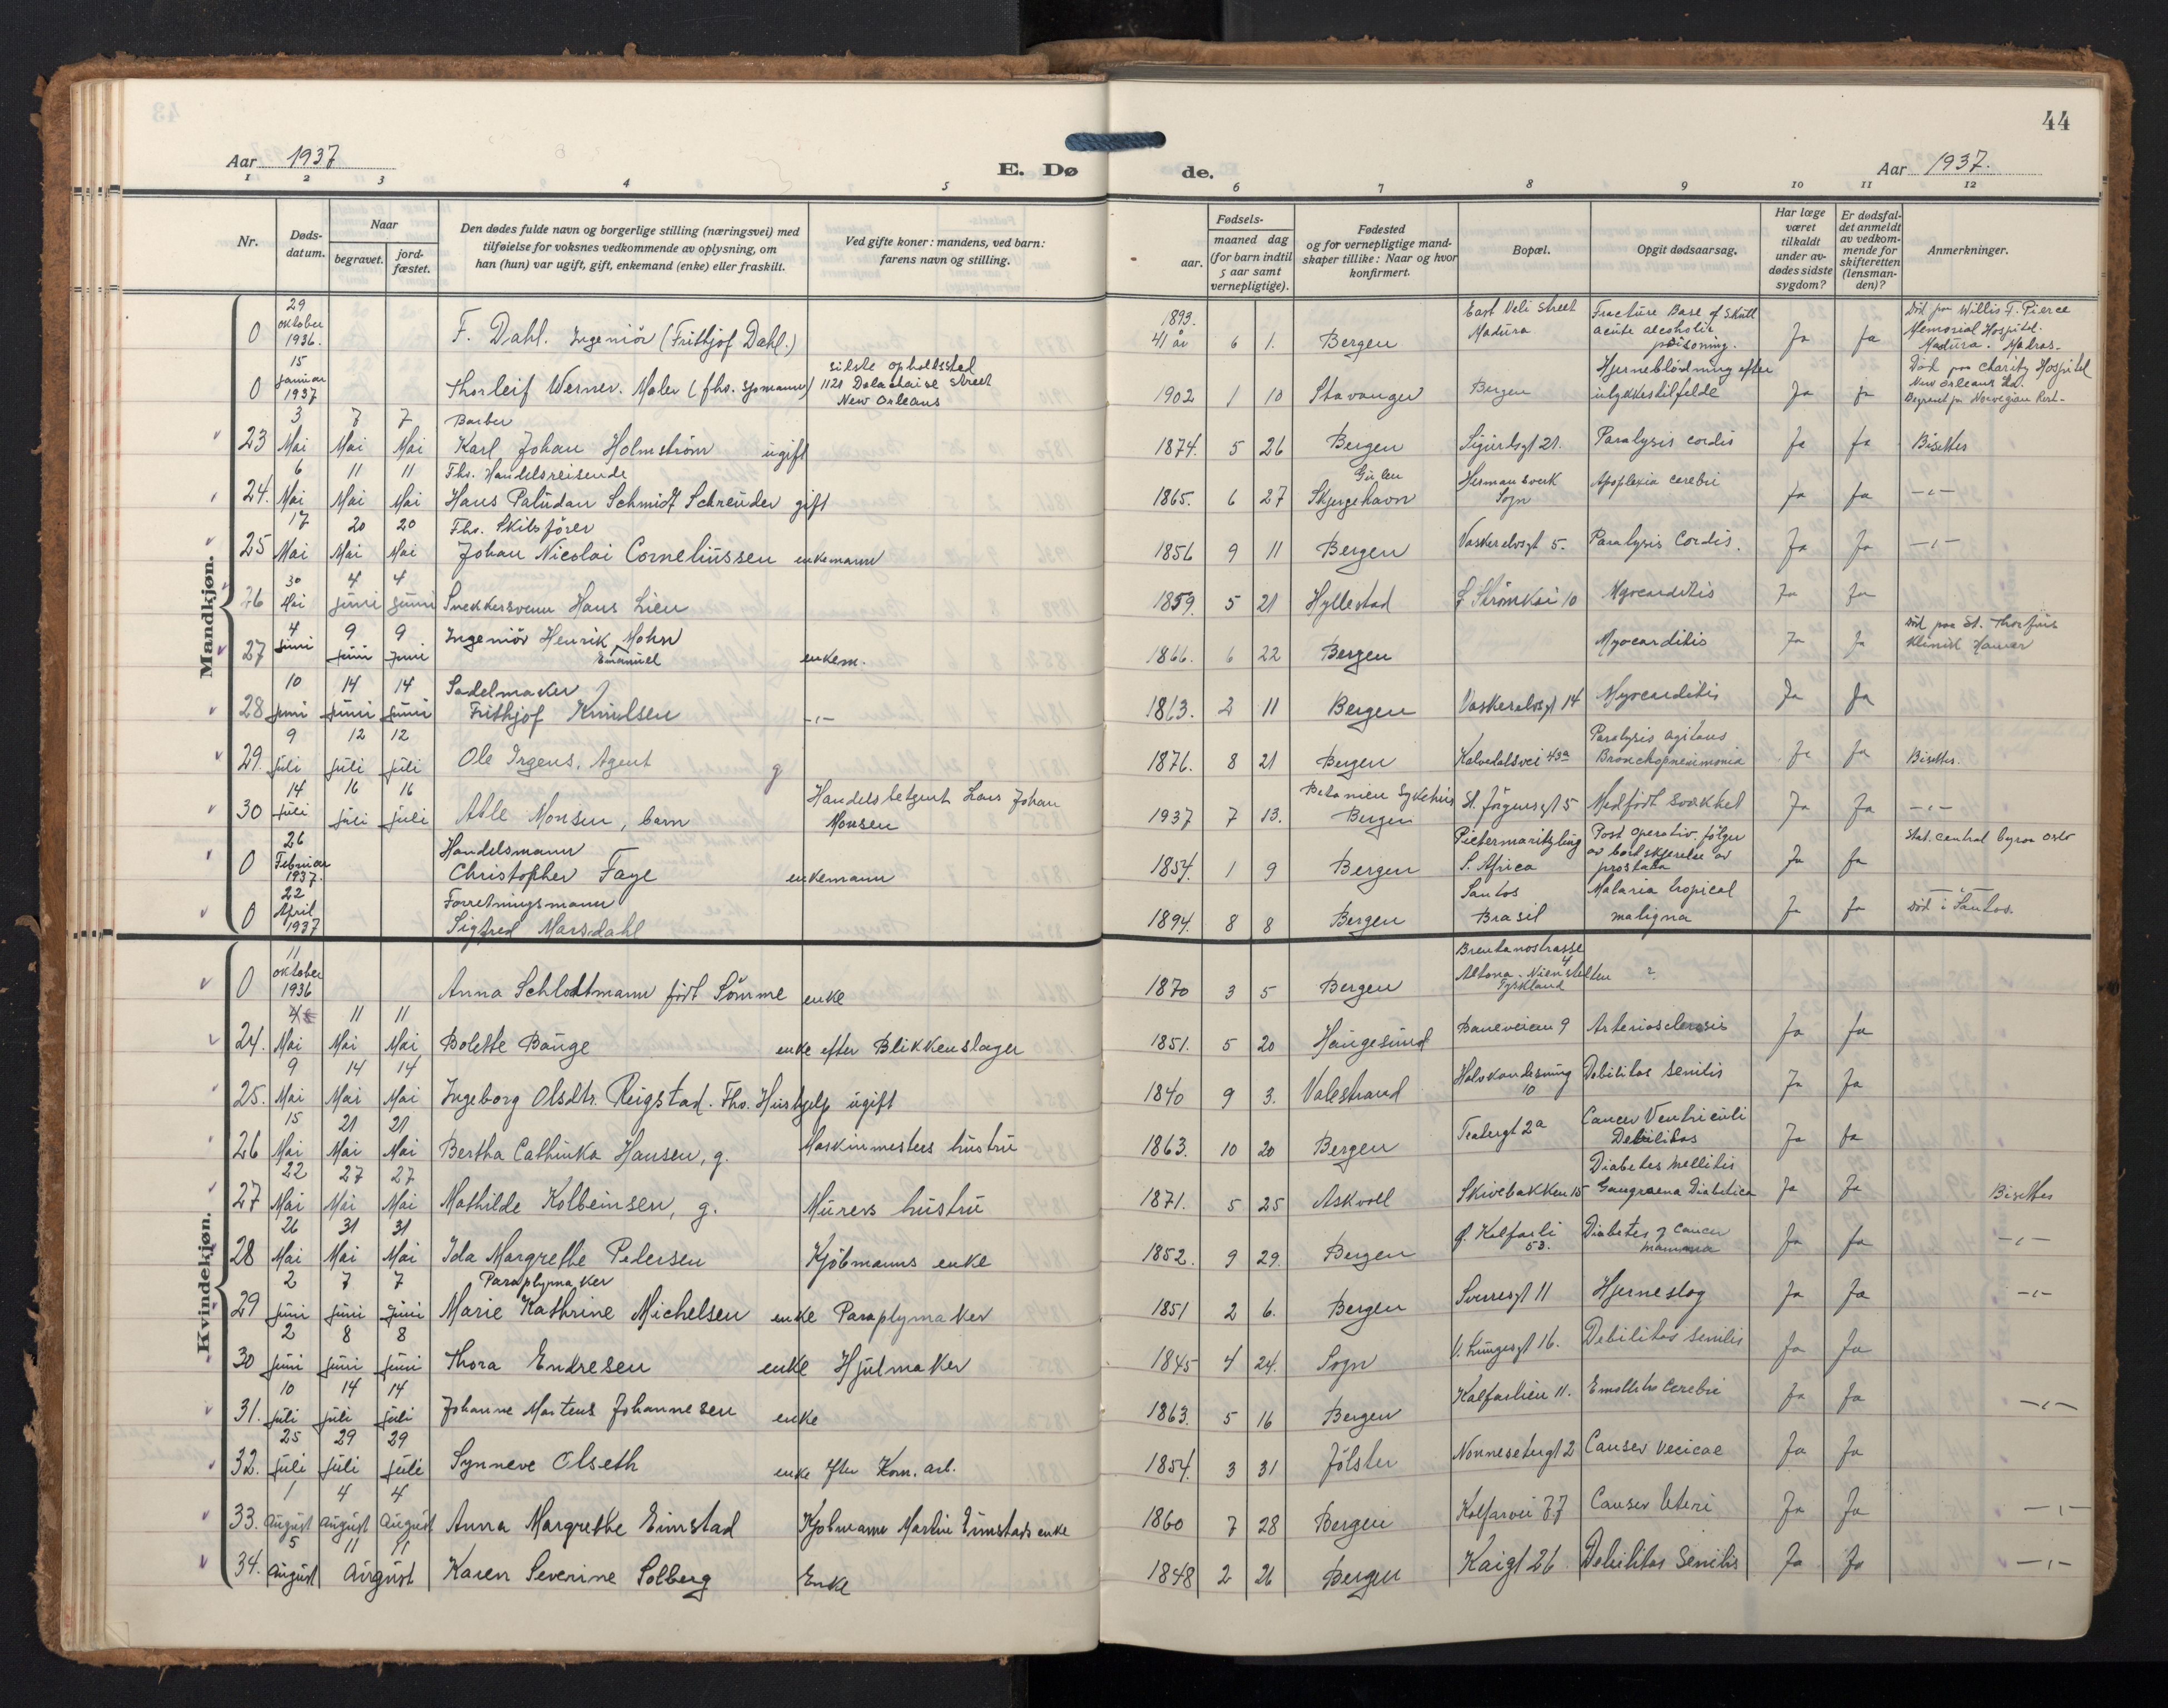 44
Aar 1937
E. Dø
de.
Aar 1937.
1 2 3 4 5 6 7 8 9 10 11 12
Nr.
Døds-
datum.
Naar
begravet.
jord-
fæstet.
Den dødes fulde navn og borgerlige stilling (næringsvei) med
tilføielse for voksnes vedkommende av oplysning, om
han (hun) var ugift, gift, enkemand (enke) eller fraskilt.
Ved gifte koner: mandens, ved barn:
farens navn og stilling.
Fødsels-
aar.
maaned dag
(for barn indtil
5 aar samt
vernepligtige).
Fødested
og for vernepligtige mand-
skaper tillike: Naar og hvor
konfirmert.
Bopæl.
Opgit dødsaarsag.
Har læge
været
tilkaldt
under av-
dødes sidste
sygdom?
Er dødsfal-
det anmeldt
av vedkom-
mende for
skifteretten
(lensman-
den)?
Anmerkninger.
Mandkjøn.
0 29 oktober 1936. F. Dahl. Ingeniör (Frithjof Dahl.) 1893. 41 år 6 1. Bergen East Veli Street Madura Fracture Base of Skull acute alcoholic poisoning. Ja Ja Död paa Willis F. Pierce Memorial Hospital. Madura. Madras-
0 15 januar 1937 Thorleif Werner. Maler (fhv. sjömann) sidste opholdssted 1121 Delachaise Street New Orleans 1902 1 10 Stavanger Bergen Hjerneblödning efter ulykkestilfelde Ja Ja Död paa Charity Hospital New Orleans La.
23 3 Mai 7 Mai 7 Mai Barber Karl Johan Holmström ugift 1874. 5 26 Bergen Sigurdsgt 21. Paralysis cordis Ja Ja Bisettes
24. 6 Mai 11 Mai 11 Mai Fhv. Handelsreisende Hans Paludan Schmidt Schreuder gift 1865. 6 27 Gulen Skjergehavn Hermansverk Sogn Apoplexia cerebri Ja Ja -"-
25 17 Mai 20 Mai 20 Mai Fhv. Skibsförer Johan Nicolai Corneliussen enkemann 1856 9 11 Bergen Vaskerelvsgt 5. Paralysis Cordis. Ja Ja -"-
26 30 Mai 4 juni 4 juni Snekkersvenn Hans Lien 1859. 5 21 Hyllestad S Strömkai 10 Myocarditis Ja Ja
27 4 juni 9 juni 9 juni Ingeniör Henrik Emanuel Mohn enkem. 1866. 6 22 Bergen Myocarditis Ja Ja Död paa St. Thorfins Klinik Hamar
28 10 juni 14 juni 14 juni Sadelmaker Frithjof Knudsen -"- 1863. 2 11 Bergen Vaskerelvsgt 14 Myocarditis Ja Ja
29. 9 juli 12 juli 12 juli Ole Irgens, Agent g 1876. 8 21 Bergen Kalvedalsvei 43a Paralysis agitans Bronchopneumonia Ja Ja Bisettes.
30 14 juli 16 juli 16 juli Atle Monsen, barn Handelsbetjent Lars Johan Monsen 1937 7 13. Betanien Sykehus Bergen St. Jörgensgt 5 Medfödt svakhet Ja Ja -"-
0 26 Februar 1937. Handelsmann Christopher Faye enkemann 1854. 1 9 Bergen Pietermaritzburg S. Africa Post operativ. følger av bortskjerelse av prostata Ja Ja Stat. central byraa Oslo
0 22 April 1937 Forretningsmann Sigfred Marsdahl 1894. 8 8 Bergen Santos Brasil Malaria tropical maligna Ja Ja -"- Död i Santos.
Kvindekjøn.
0 11 oktober 1936 Anna Schlodtmann födt Sömme enke 1870 3 5 Bergen Brentanostrasse 4 Altona-Nienstedten Tyskland ?
24. 4 Mai 11 Mai 11 Mai Bolette Bauge enke efter Blikkenslager 1851. 5 20 Haugesund Baneveien 9 Arteriosclerosis Ja Ja
25. 9 Mai 14 Mai 14 Mai Ingeborg Olsdtr. Reigstad. Fhv. Hushjelp ugift 1840 9 3. Valestrand 10 Debilitas senilis Ja Ja
26 15 Mai 21 Mai 21 Mai Bertha Cathinka Hansen, g. Maskinmesters hustru 1863. 10 20 Bergen Teatergt 2a Cancer Ventriculi Debilitas Ja Ja
27 22 Mai 27 Mai 27 Mai Mathilde Kolbeinsen, g. Murers hustru 1871. 5 25 Askvoll Skivebakken 15 Diabetes mellitis Gangraena Diabetica Ja Ja Bisettes
28 26 Mai 31 Mai 31 Mai Ida Margrethe Pedersen Kjöbmanns enke 1852. 9 29. Bergen Ø. Kalfarli 53. Diabetes og cancer mamma Ja Ja -"-
29 2 juni 7 juni 7 juni Paraplymaker Marie Kathrine Michelsen enke Paraplymaker 1851 2 6. Bergen Sverresgt 11 Hjerneslag Ja Ja -"-
30 2 juni 8 juni 8 juni Thora Endresen enke Hjulmaker 1845 4 24. Sogn V. Lungegt 16. Debilitas senilis Ja Ja
31. 10 juli 14 juli 14 juli Johanne Martens Johannesen enke 1863. 5 16 Bergen Kalfarlien 11. Emollitio cerebri Ja Ja -"-
32. 25 juli 29 juli 29 juli Synneve Olseth enke efter Kom. arb. 1854. 3 31 Jölster Nonnesetergt 2 Cancer vecicae Ja Ja
33. 1 August 4 August 4 August Anna Margrethe Eimstad Kjöbmann Martin Eimstads enke 1860 7 28 Bergen Kalfarvei 77 Cancer Uteri Ja Ja -"-
34. 5 August 11 11 August Karen Severine Solberg Enke 1848 2 26 Bergen Kaigt 26 Debilitas Senilis Ja Ja -"-